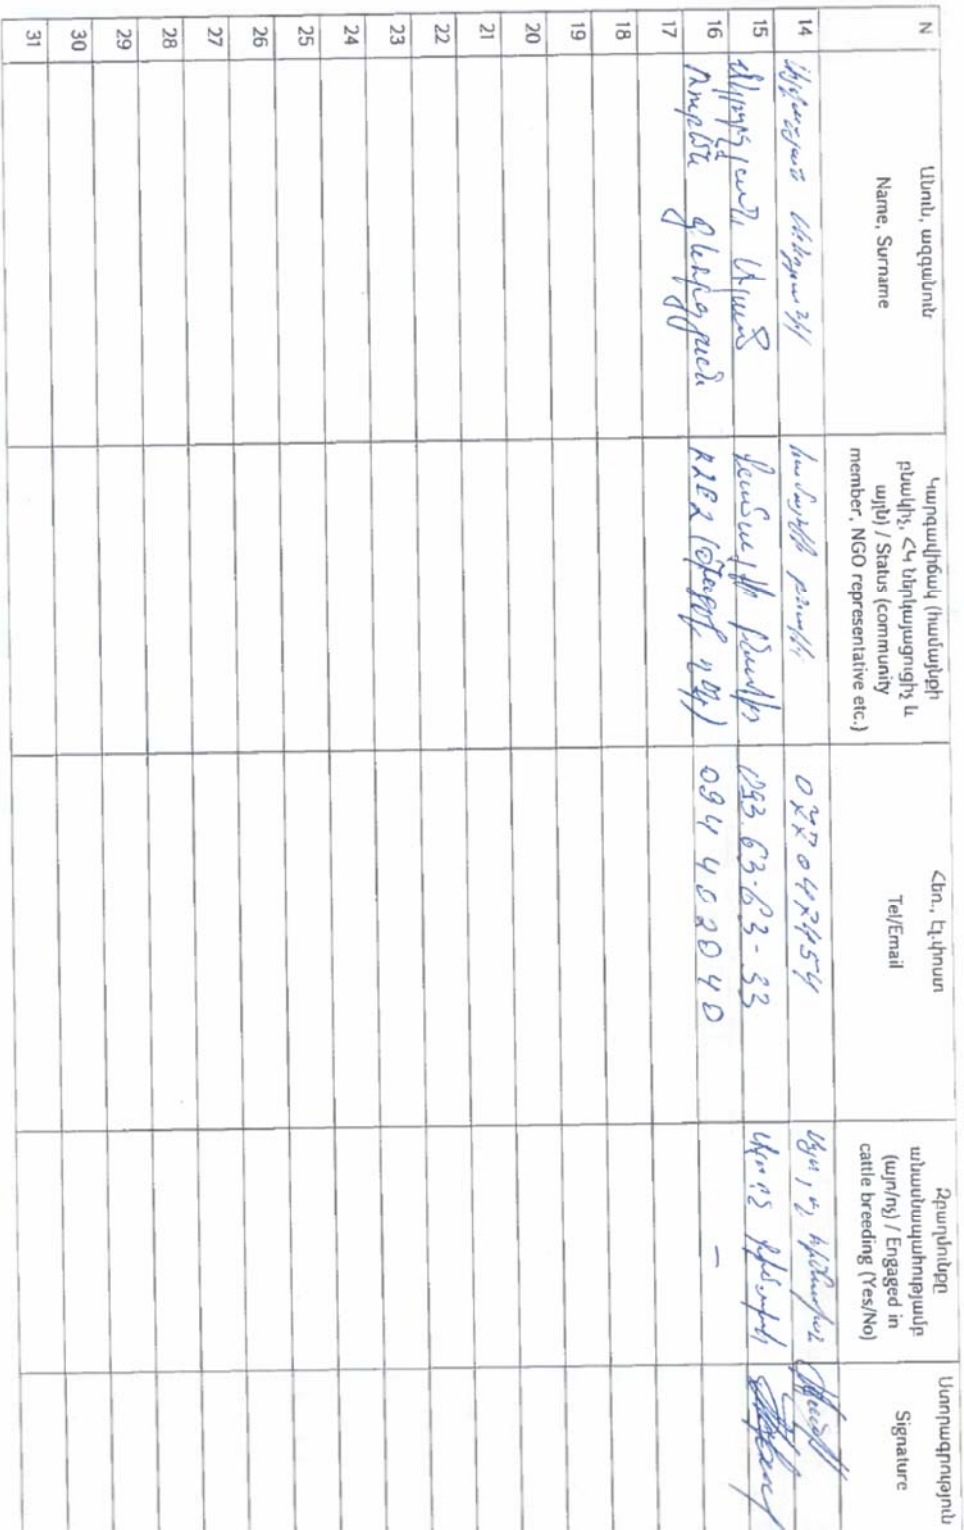 N
Անուն, ազգանուն
Name, Surname
Կարգավիճակ (համայնքի
բնակիչ, ՀԿ ներկայացուցիչ և
այլն) / Status (community
member, NGO representative etc.)
Հեռ., էլ.փոստ
Tel/Email
Զբաղմունքը
անասնապահությամբ
(այո/ոչ) / Engaged in
cattle breeding (Yes/No)
Ստորագրություն
Signature
14
համայնքի բնակիչ
077047454
Այո, ոչ հիմնական
15
համայնքի բնակիչ
093.63-63-33
16
Ռուբեն
094 402040
–
17
18
19
20
21
22
23
24
25
26
27
28
29
30
31